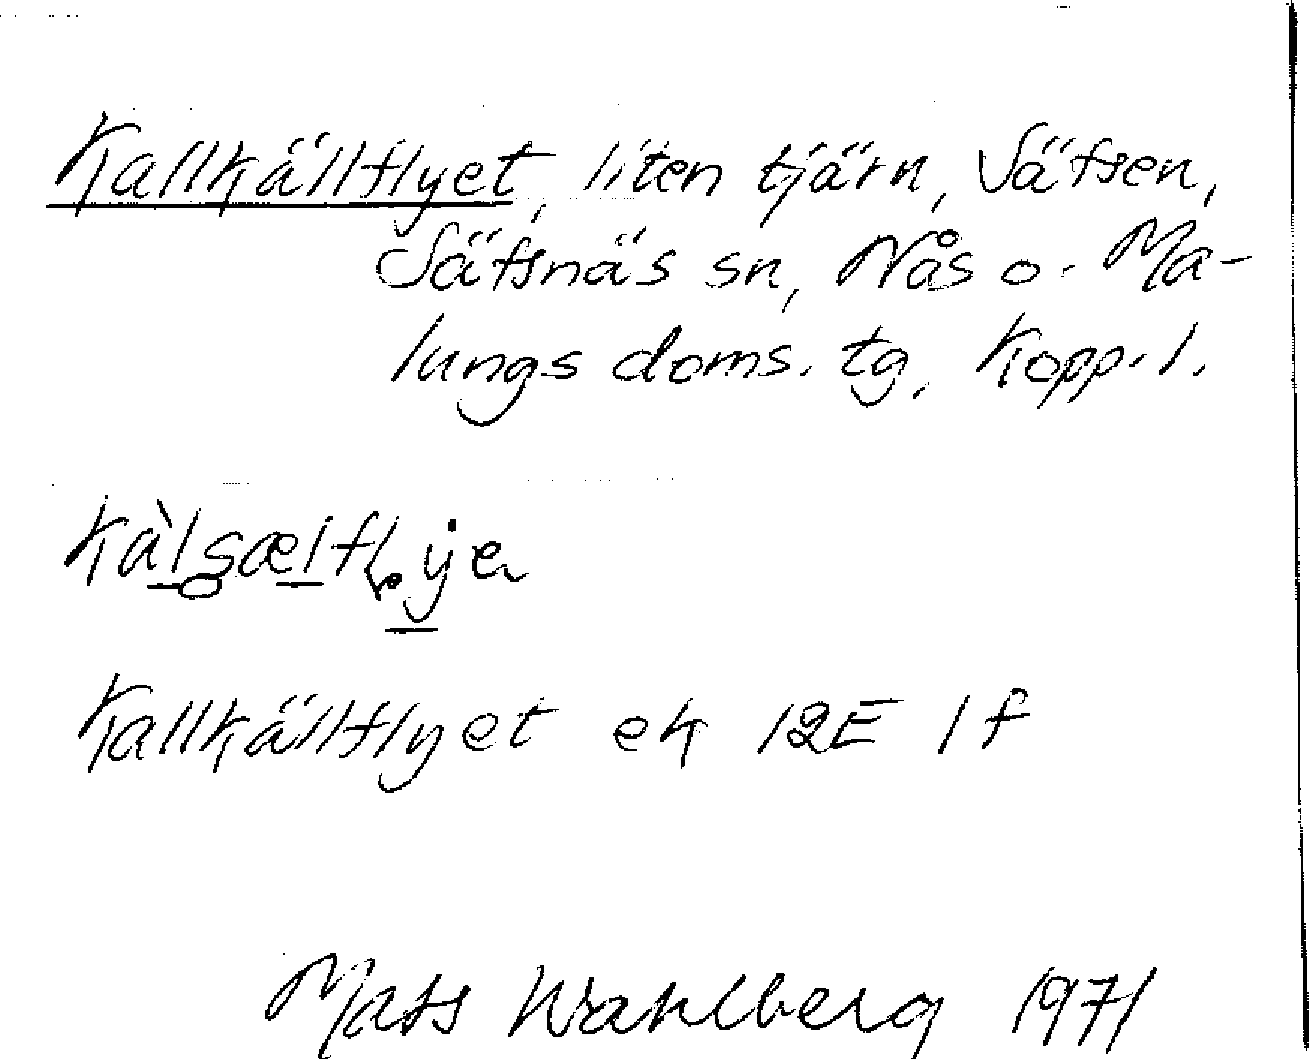 Kallkällflyet, liten tjärn, Sätsen,
Sätsnäs sn, Nås o. Ma-
lungs doms. tg, Kopp. l.
Kallkällflyet ek 12E 1f
Mats Wahlberg 1971